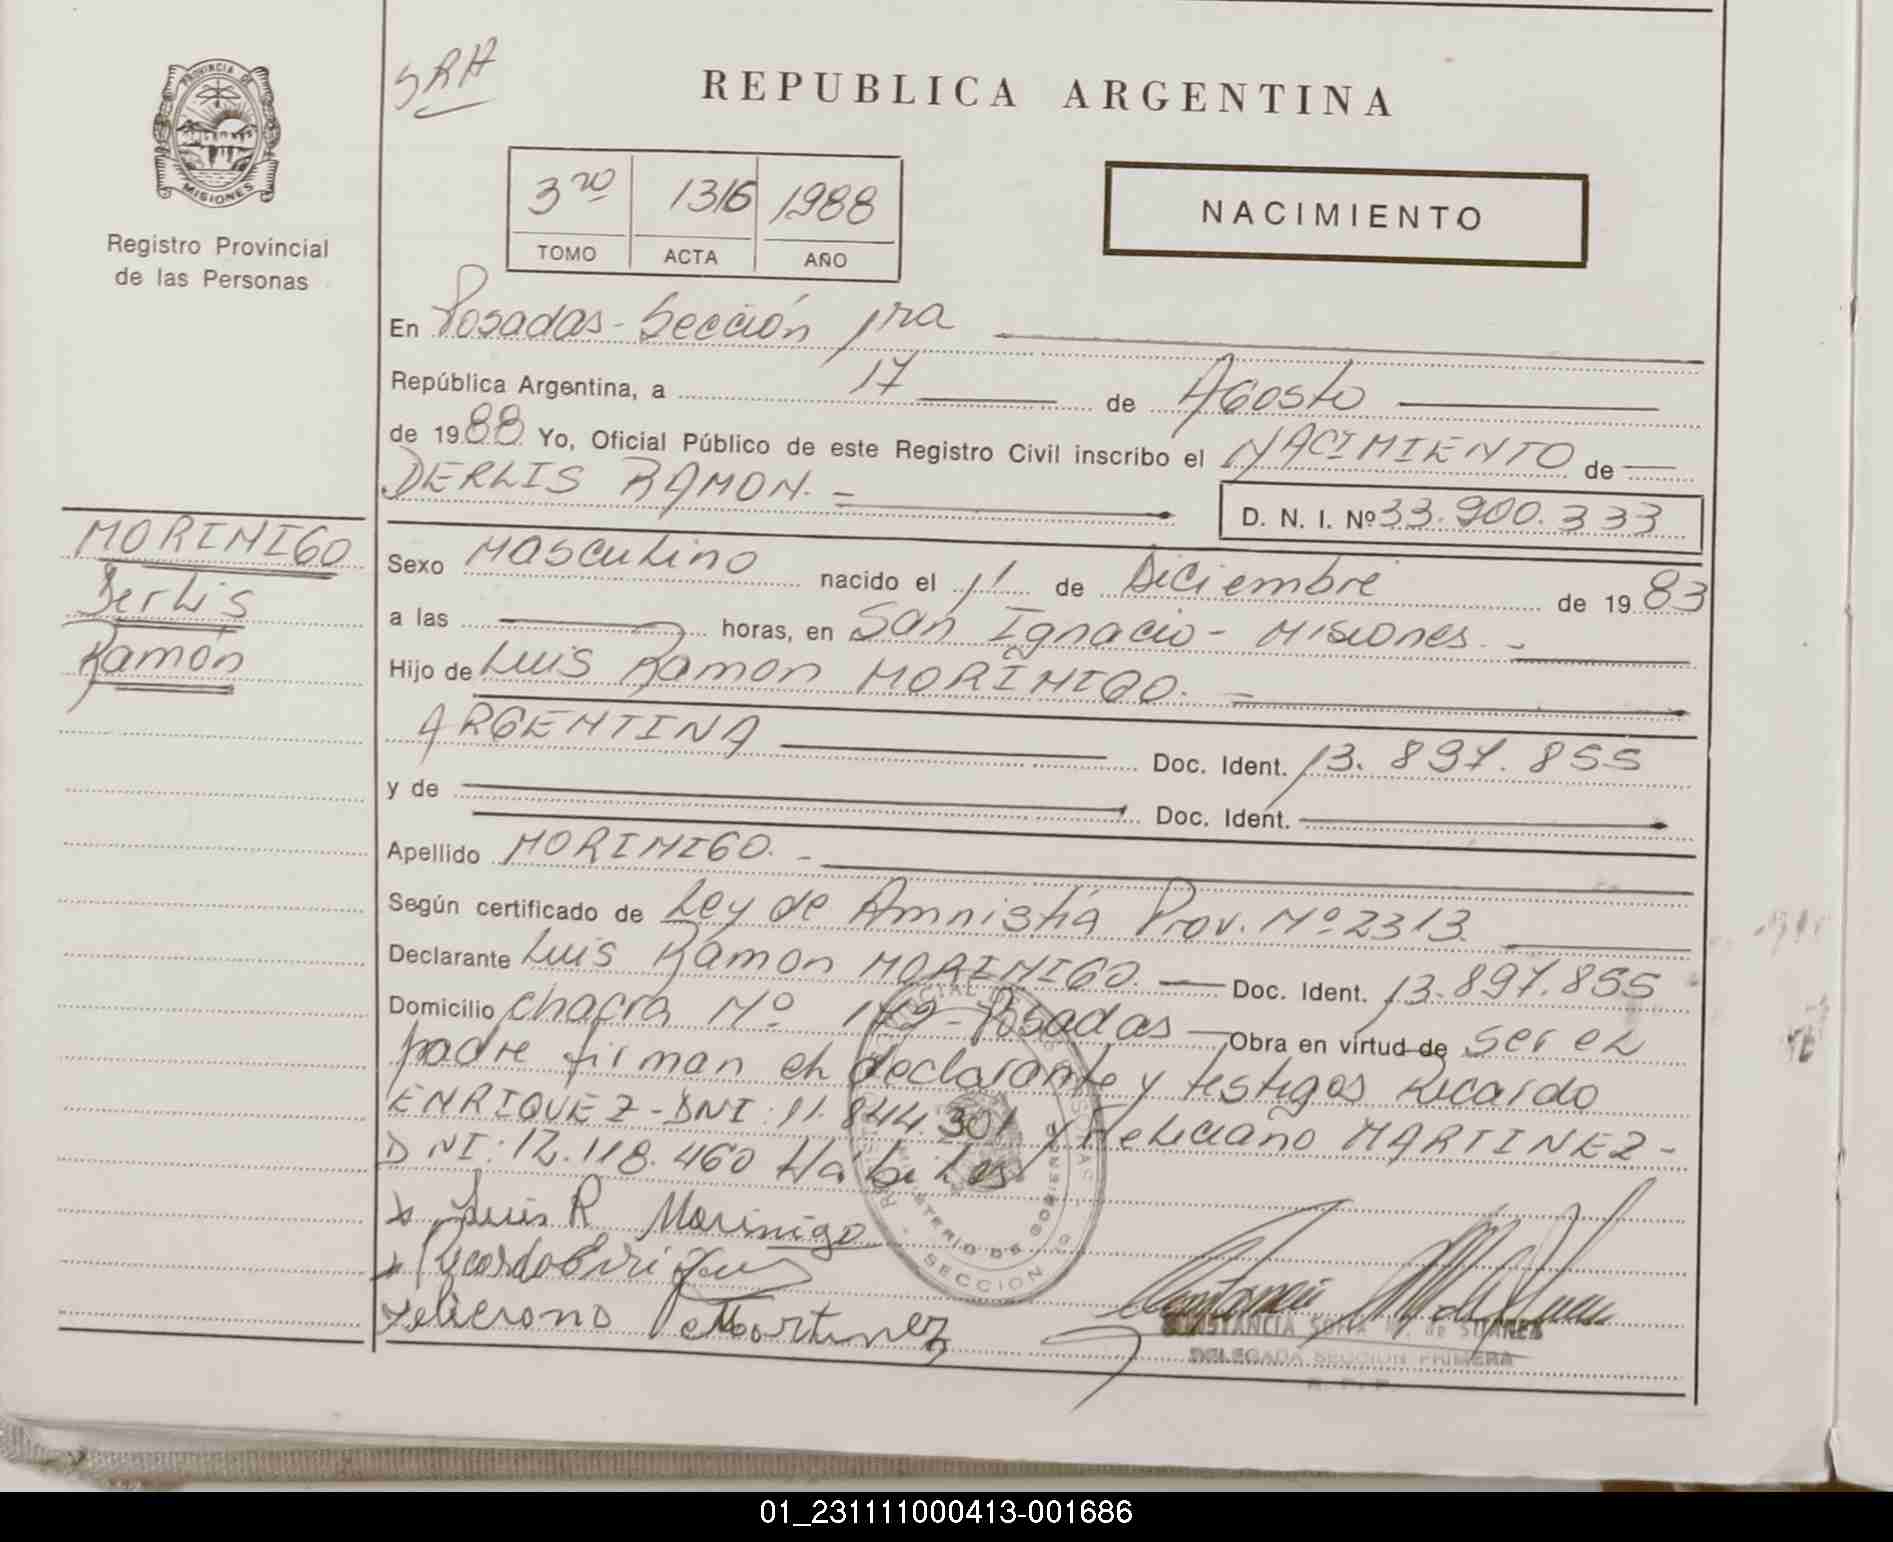 SRA
REPUBLICA ARGENTINA
PROVINCIA DE
MISIONES
Registro Provincial
de las Personas
3ro 1316 1988
TOMO ACTA AÑO
NACIMIENTO
En Posadas - Sección 1ra
República Argentina, a 17 de Agosto
de 1988 Yo, Oficial Público de este Registro Civil inscribo el NACIMIENTO de
DERLIS RAMON. =
D. N. I. Nº 33.900.333
MORINIGO
Derlis
Ramón
Sexo Masculino nacido el 11 de Diciembre de 1983
a las horas, en San Ignacio - Misiones. -
Hijo de Luis Ramon MORIÑIGO. =
ARGENTINA Doc. Ident. 13.897.855
y de Doc. Ident.
Apellido MORINIGO. -
Según certificado de Ley de Amnistía Prov. Nº 2313.
Declarante Luis Ramon MORINIGO. Doc. Ident. 13.897.855
Domicilio chacra Nº 179 - Posadas Obra en virtud de ser el
padre firman el declarante y testigos Ricardo
ENRIQUEZ - DNI: 11.844.301 y Feliciano MARTINEZ -
DNI: 12.118.460 Hábiles
Luis R Morinigo
Feliciano Martinez
SECCION
CONSTANCIA SOFIA M. de SUAREZ
DELEGADA SECCION PRIMERA
R. P. P.
01_231111000413-001686